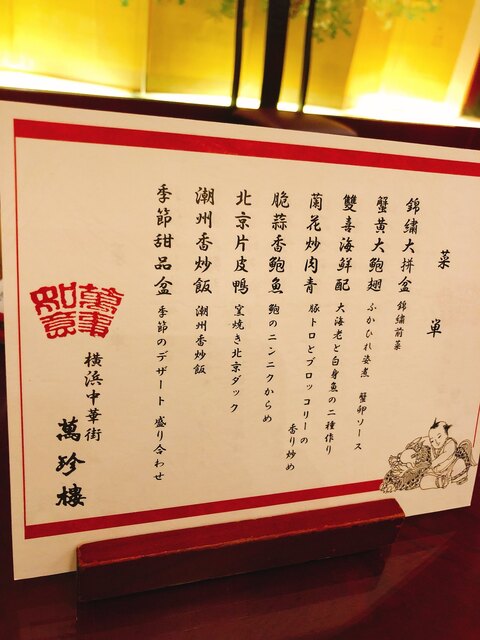 菜単
錦繡大拼盆 錦繡前菜
蟹黄大鮑翅 ふかひれ姿煮 蟹卵ソース
雙喜海鮮配 大海老と白身魚の二種作り
蘭花炒肉青 豚トロとブロッコリーの
香り炒め
脆蒜香鮑魚 鮑のニンニクからめ
北京片皮鴨 窯焼き北京ダック
潮州香炒飯 潮州香炒飯
季節甜品盆 季節のデザート 盛り合わせ
萬事
如意
横浜中華街
萬珍樓